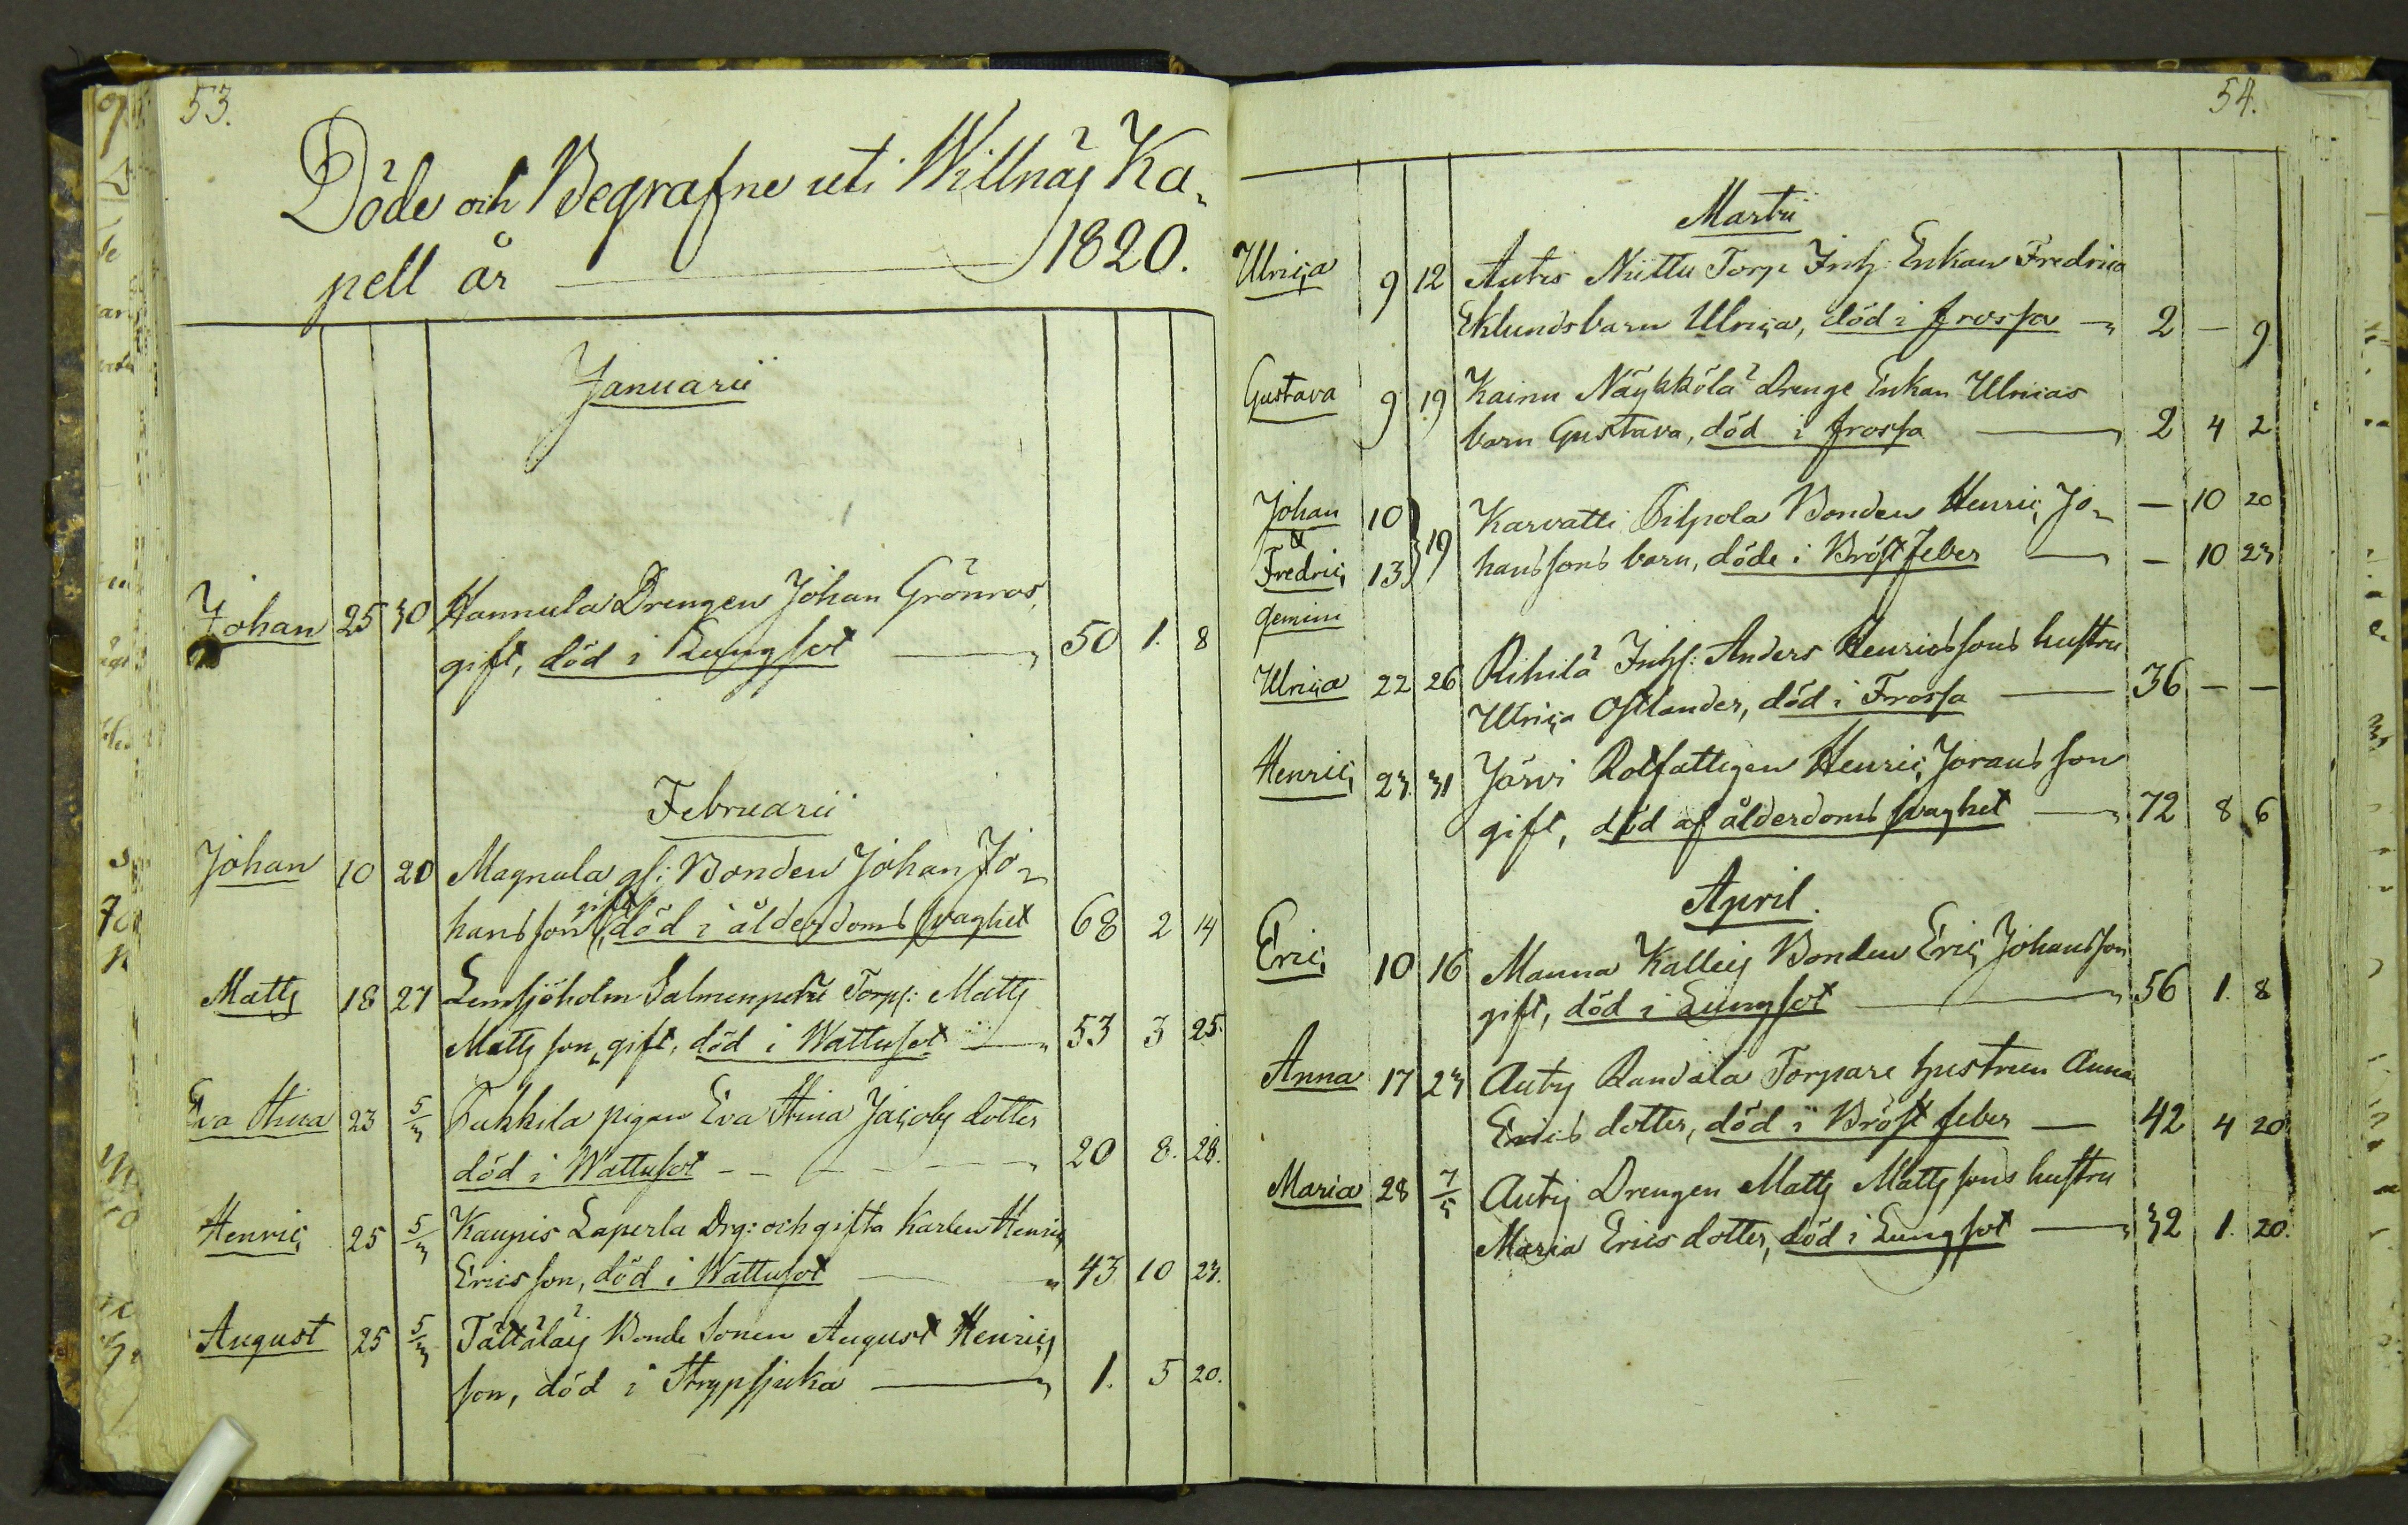 53.
Döde och Begrafne uti Willnäs Ka-
pell år 1820.
Januarii
Johan 25 30 Hannula Drengen Johan Grönroos,
gift, död i Lungsot 50 1. 8
Februarii
Johan 10 20 Magnula gl: Bonden Johan Jo-
hansson, gift, död i ålderdoms svaghet 68 2 14
Matts 18 27 Lemsjöholm Salmenperä Torp: Matts
Mattsson, gift, död i Wattusot 53 3 25.
Eva Stina 23 5/3 Pukkila pigan Eva Stina Jacobs dotter
död i Wattusot 20 8. 28.
Henric 25 5/3 Kaupis Laperla Drg: och gifta karlen Henric
Ericsson, död i Wattusot 43 10 23.
August 25 5/3 Tättäläis Bonde Sonen August Henrics
son, död i Strypsjuka 1. 5 20.
54.
Martii
Ulrica 9 12 Autis Niittu Torp Inh: Enkan Fredrica
Eklunds barn Ulrica, död i frossa 2 – 9
Gustava 9 19 Kainu Näykkölä Drenge Enkan Ulricas
barn Gustava, död i frossa 2 4 2
Johan 10 19 Karvatti Pilpola Bonden Henric Jo- – 10 20
&
Fredric 13 hanssons barn, döde i Bröstfeber – 10 23
gemini
Ulrica 22 26 Rihilä Inhs: Anders Henricssons hustru
Ulrica Ostlander, död i Frossa 36 – –
Henric 23. 31 Järvi Rotfattigen Henric Joransson
gift, död af ålderdoms svaghet 72 8 6
April.
Eric 10 16 Manna Kalleis Bonden Eric Johansson
gift, död i Lungsot 56 1. 8
Anna 17 23 Autis Randala Torpare hustrun Anna
Erics dotter, död i Bröst feber 42 4 20
Maria 28 7/5 Autis Drengen Matts Mattssons hustru
Maria Erics dotter, död i Lungsot 32 1. 20.